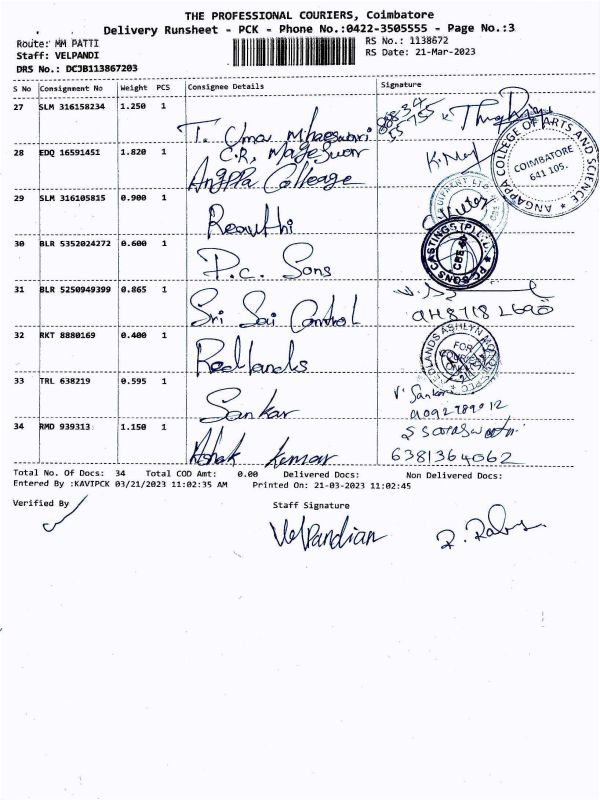 THE PROFESSIONAL COURIERS, Coimbatore
Delivery Runsheet - PCK - Phone No.:0422-3505555 - Page No.:3
Route: MM PATTI RS No.: 1138672
Staff: VELPANDI RS Date: 21-Mar-2023
DRS No.: DCJB113867203
S No Consignment No Weight PCS Consignee Details Signature
27 SLM 316158234 1.250 1
T. Uma Maheswari
28 EDQ 16591451 1.820 1 C.R, Mageswari
Angppa Colleage
ANGAPPA COLLEGE OF ARTS AND SCIENCE
COIMBATORE
641 105.
29 SLM 316105815 0.900 1
Revathi
30 BLR 5352024272 0.600 1
P.C. Sons
PC SONS CASTINGS (P) LTD.
CBE
31 BLR 5250949399 0.865 1
Sri Sai Control
32 RKT 8880169 0.400 1
Redlands
FOR
33 TRL 638219 0.595 1
Sankar
V. Sankar
34 RMD 939313 1.150 1
Ashok Kumar
6381364062
Total No. Of Docs: 34 Total COD Amt: 0.00 Delivered Docs: Non Delivered Docs:
Entered By :KAVIPCK 03/21/2023 11:02:35 AM Printed On: 21-03-2023 11:02:45
Verified By Staff Signature
VelPandian